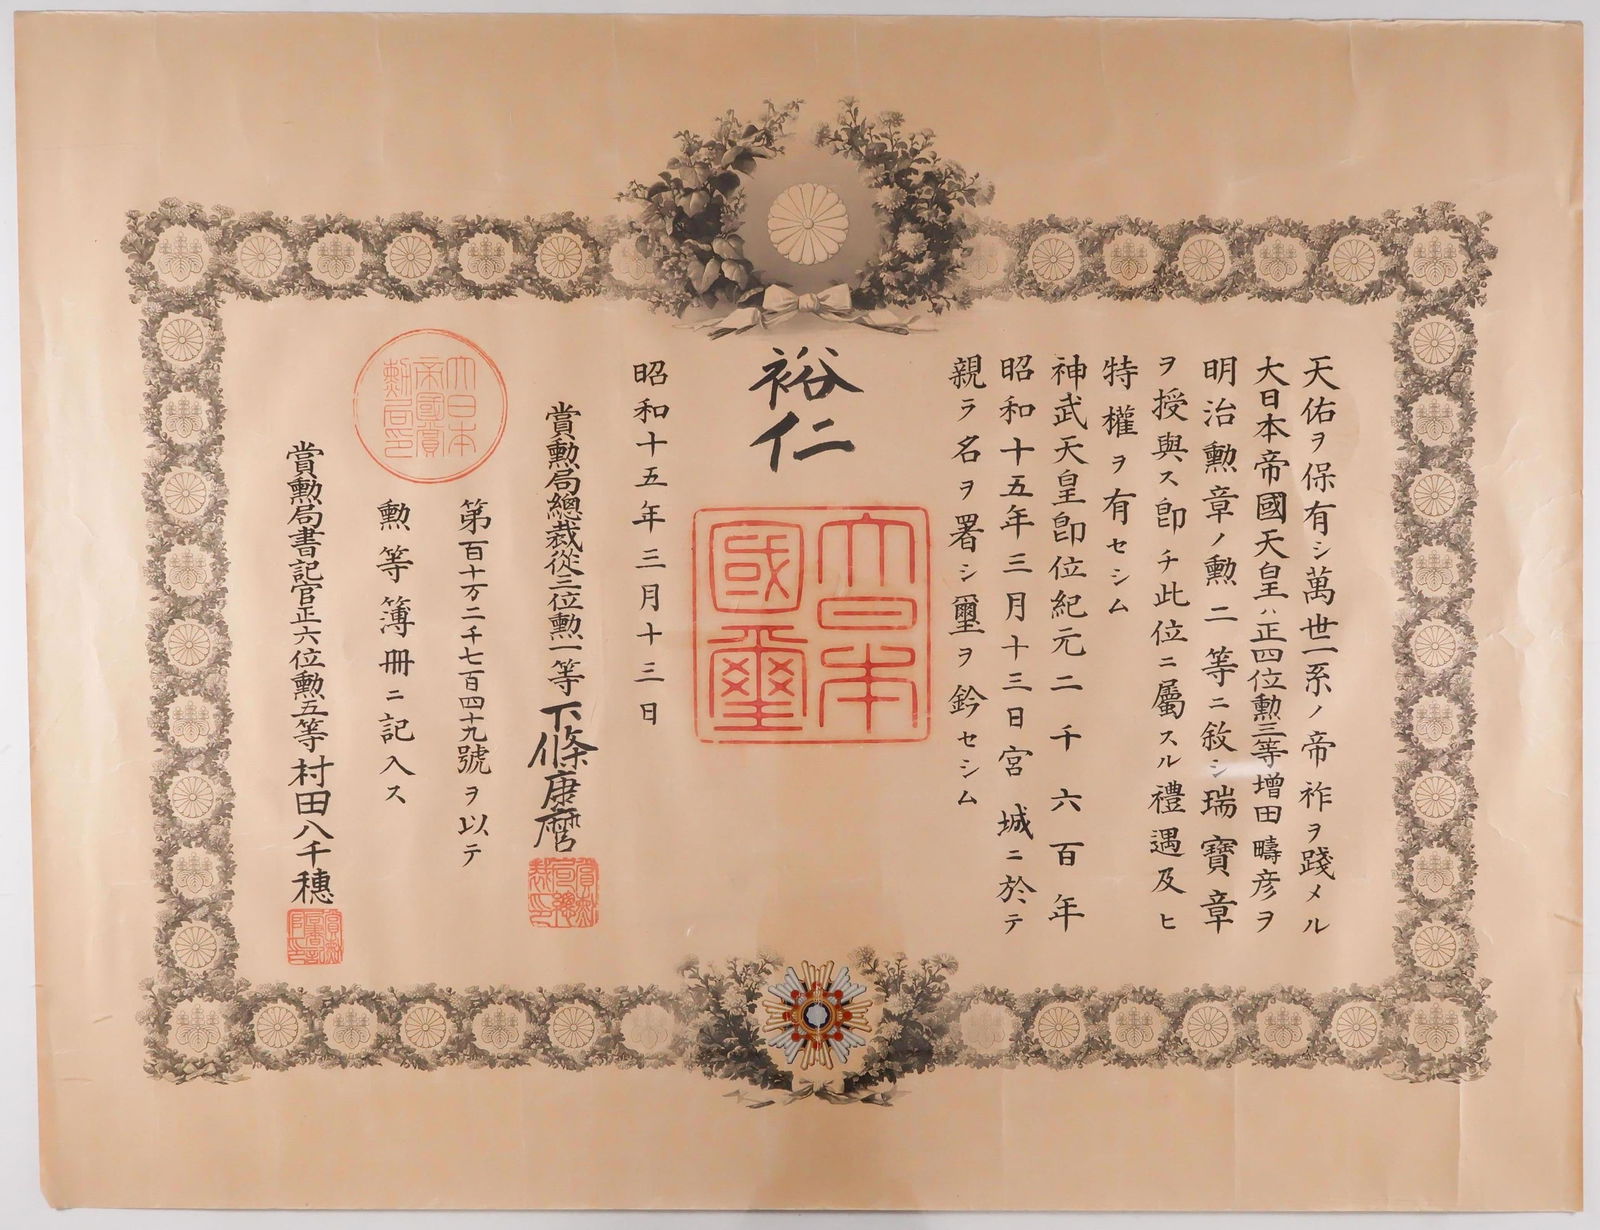 天佑ヲ保有シ萬世一系ノ帝祚ヲ踐メル
大日本帝國天皇ハ正四位勲三等增田疇彦ヲ
明治勲章ノ勲二等ニ敘シ瑞寶章
ヲ授與ス卽チ此位ニ屬スル禮遇及ヒ
特權ヲ有セシム
神武天皇卽位紀元二千六百年
昭和十五年三月十三日宮城ニ於テ
親ラ名ヲ署シ璽ヲ鈐セシム
裕仁
大日本
國璽
昭和十五年三月十三日
賞勲局總裁從三位勲一等下條康麿
賞勲局總裁印
第百十万二千七百四十九號ヲ以テ
勲等簿冊ニ記入ス
大日本帝國賞勲局印
賞勲局書記官正六位勲五等村田八千穗